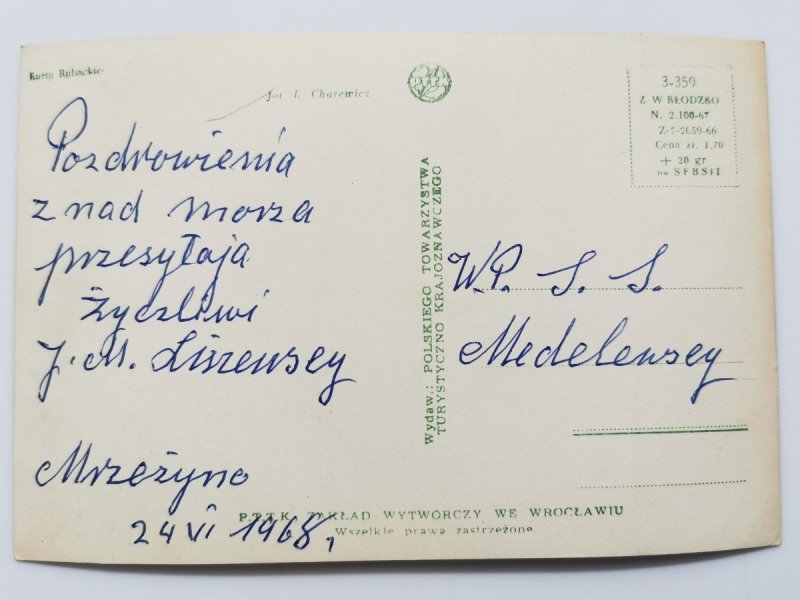 Kutry Rybackie
fot. L. Charewicz
Pozdrowienia
z nad morza
przesyłają
Życzliwi
J. M. Liszewscy
Mrzeżyno
24 VI 1968,
PTTK
Wydaw.: POLSKIEGO TOWARZYSTWA
TURYSTYCZNO KRAJOZNAWCZEGO
3-359
Z W KŁODZKO
N. 2.100-67
Z-7-2059-66
Cena zł. 1.70
+ 20 gr
na SFBSiI
W.P. S. S.
Medelewscy
P.T.T.K. ZAKŁAD WYTWÓRCZY WE WROCŁAWIU
Wszelkie prawa zastrzeżone